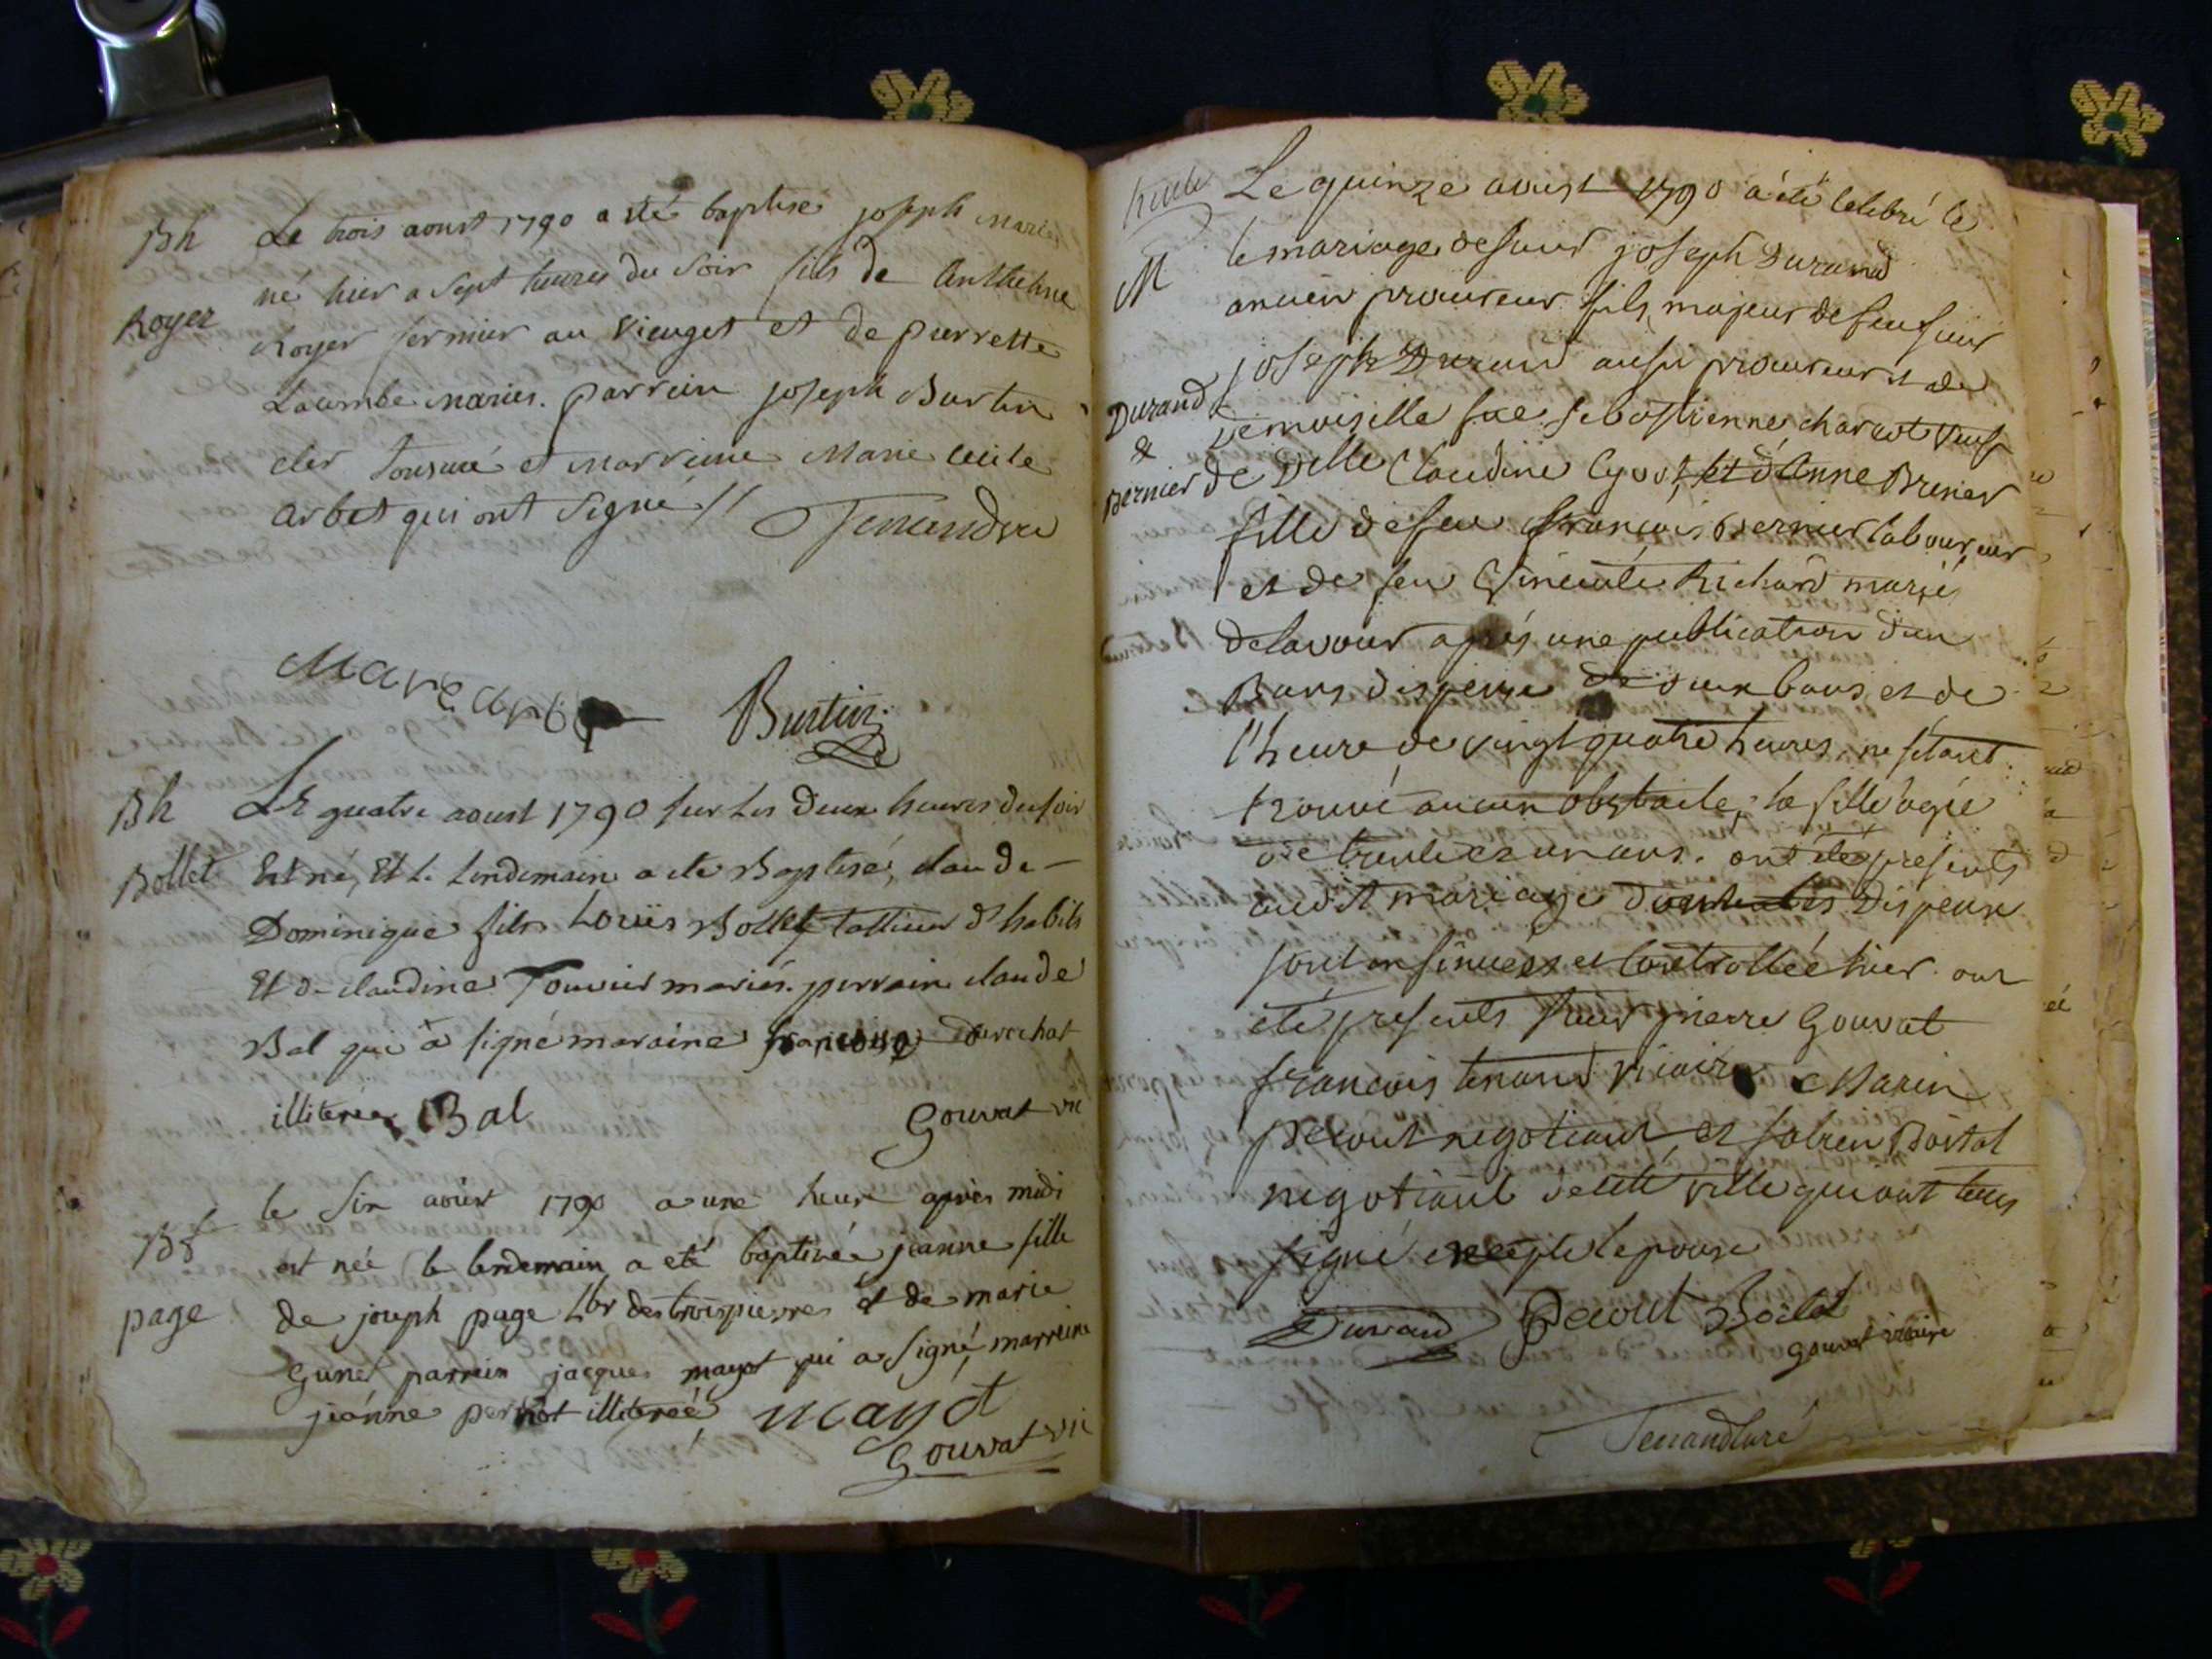 Bh
Royer
Le trois aoust 1790 a été baptisé joseph Marie
né hier a sept heures du soir fils de Anthelme
Royer fermier au Vieuget et de pierrette
Lacombe mariés. parrein joseph Burtin
cler tonsuré et Marreine Marie Cecile
Arbet qui ont signé //
Tenandcuré
Burtin
Bh
Bollet
Le quatre aoust 1790 sur les deux heures du soir
Est né, Et le Lendemain a ete Baptisé, claude
Dominique fils Louis Bollet tallieur d'habits
Et de claudine Touvier mariés. parrain claude
Bal qui a signé maraine francoise
illiterée Bal
Gouvat vic
Bf
page
le six août 1790 a une heure après midi
est née le lendemain a eté baptisée jeanne fille
de joseph page Lbr des troispierres et de marie
Gunet parrein jacques mayot qui a signé, marreine
jeanne pernot illiterée
mayot
Gouvat vic
M
Durand
&
Bernier
Le quinze aoust 1790 a été celebré le
le mariage de sieur joseph Durand
ancien procureur fils majeur de feu sieur
joseph Durand aussi procureur et de
Demoiselle feue sebastienne charcot veuf
de Delle Claudine Cyvot et d'anne Brenier
fille de feu francois Bernier laboureur
et de feu Richard mariés
delavour après une publication d'un
Bans dispense de deux bans et de
l'heure de vingt quatre heures, ne s'etant
trouvé aucun obstacle, la fille agée
de trente et un ans. ont été presents
audit mariage Dispense
sont insinuées et controllée hier ont
été presents sieur pierre Gouvat
francois tenand vicaire Marin
Decout negotiant et Boitat
negotiant de cette ville qui ont tous
signé excepté lepouse
Durand Decout Boitat
Gouvat vicaire
Tenandcuré